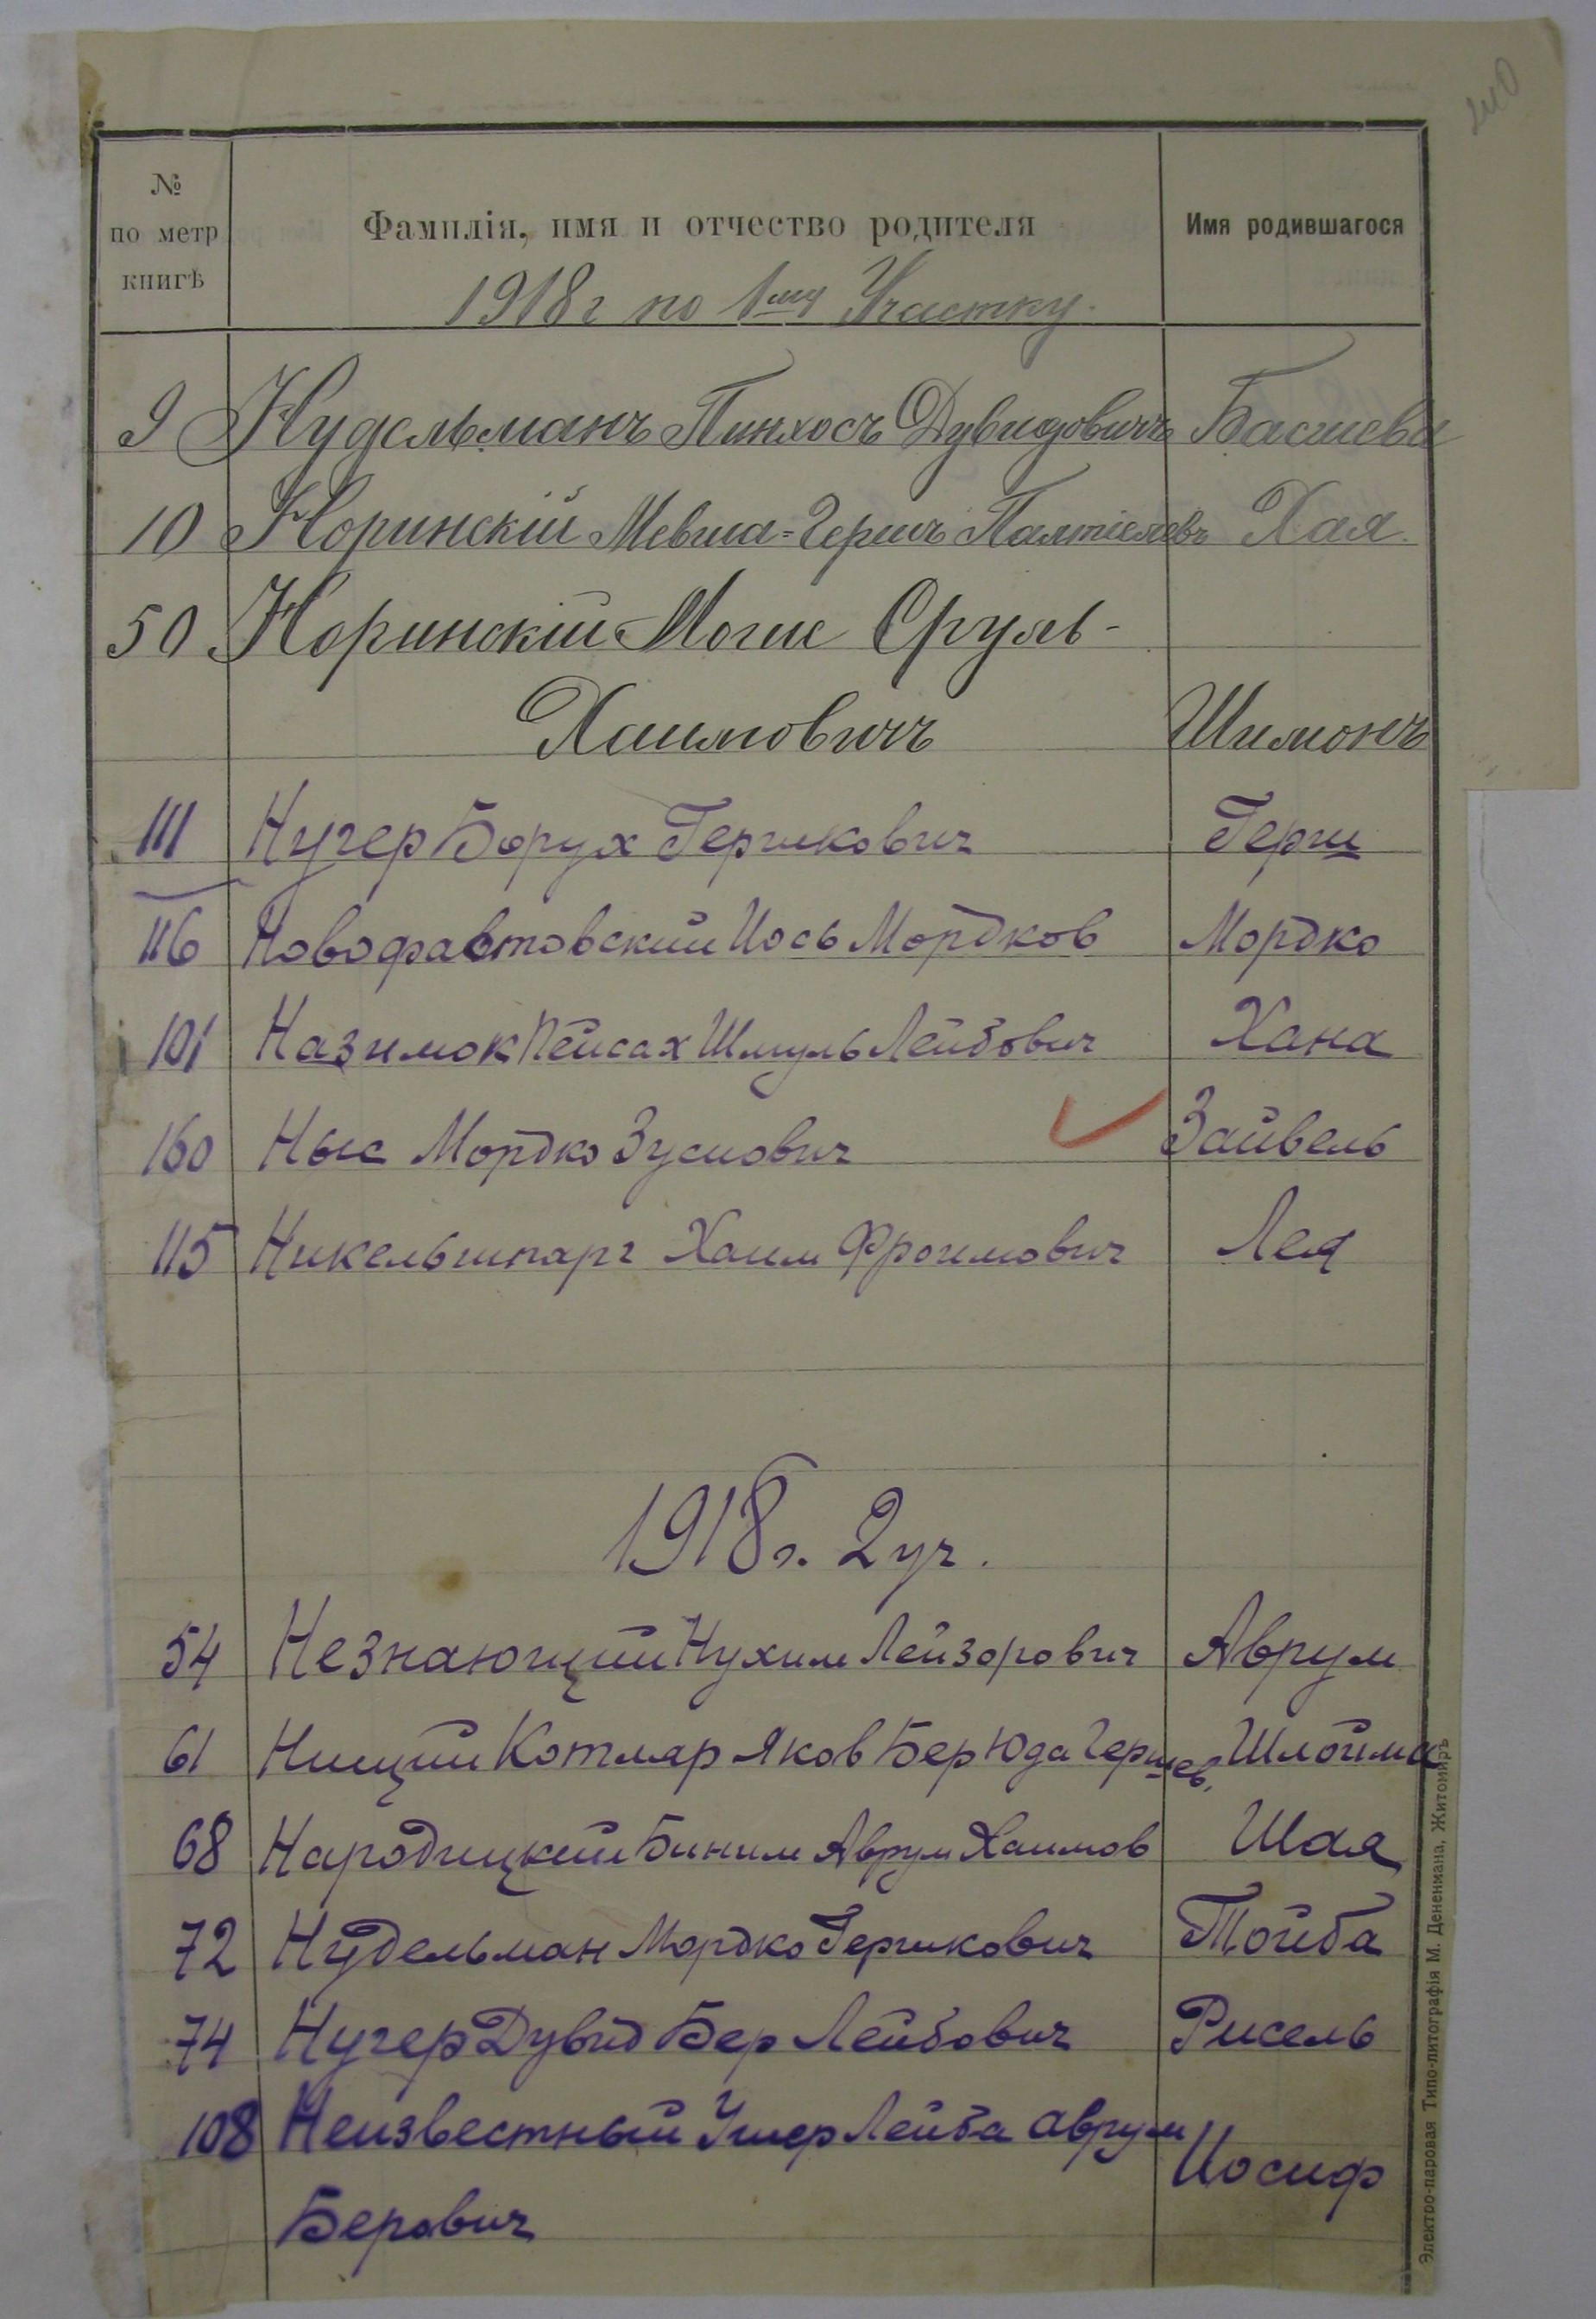 210
№ по метр книгѣ
Фамилія, имя и отчество родителя
Имя родившагося
1918 г по 1му Участку.
9 Нудельманъ Пинхосъ Дувидовичъ Басшева
10 Норинскій Мевша=Гершъ Палтіелевъ Хая.
50 Норинскій Мошe Сруль-
Хаимовичъ Шимонъ
111 Нугер Борух Гершкович Герш
116 Новофастовский Иось Мордков Мордко
101 Назимок Пейсах Шмуль Лейбович Хана
160 Ныс Мордко Зусиович Зайвель
115 Никельшпарг Хаим Фроимович Лея
1918 г. 2 уч.
54 Незнающий Нухим Лейзорович Аврум
61 Нищий Котляр Яков Бер Юда Гершев. Шлойма
68 Народицкий Биним Аврум Хаимов Шая
72 Нудельман Мордко Гершкович Тойба
74 Нугер Дувид Бер Лейбович Рисель
108 Неизвестный Ушер Лейба Аврум
Берович Иосиф
Электро-паровая Типо-литографія М. Дененмана, Житомиръ